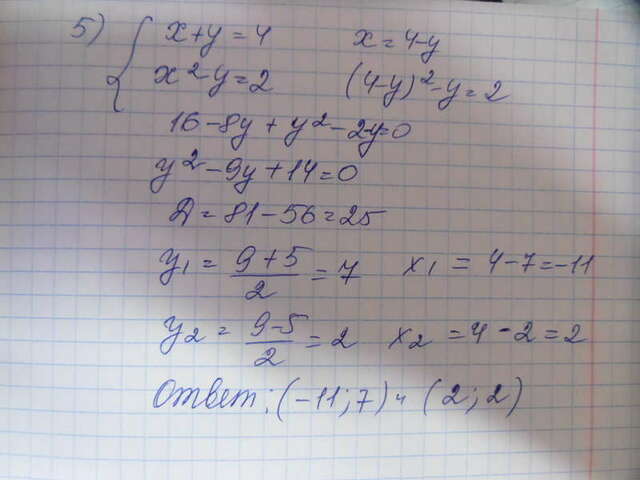 5) { x+y=4 x=4-y
x²-y=2 (4-y)²-y=2
16-8y+y²-2-y=0
y²-9y+14=0
D=81-56=25
y₁ = (9+5)/2 = 7 x₁ = 4-7=-11
y₂ = (9-5)/2 = 2 x₂ = 4-2=2
Ответ: (-11;7) и (2;2)